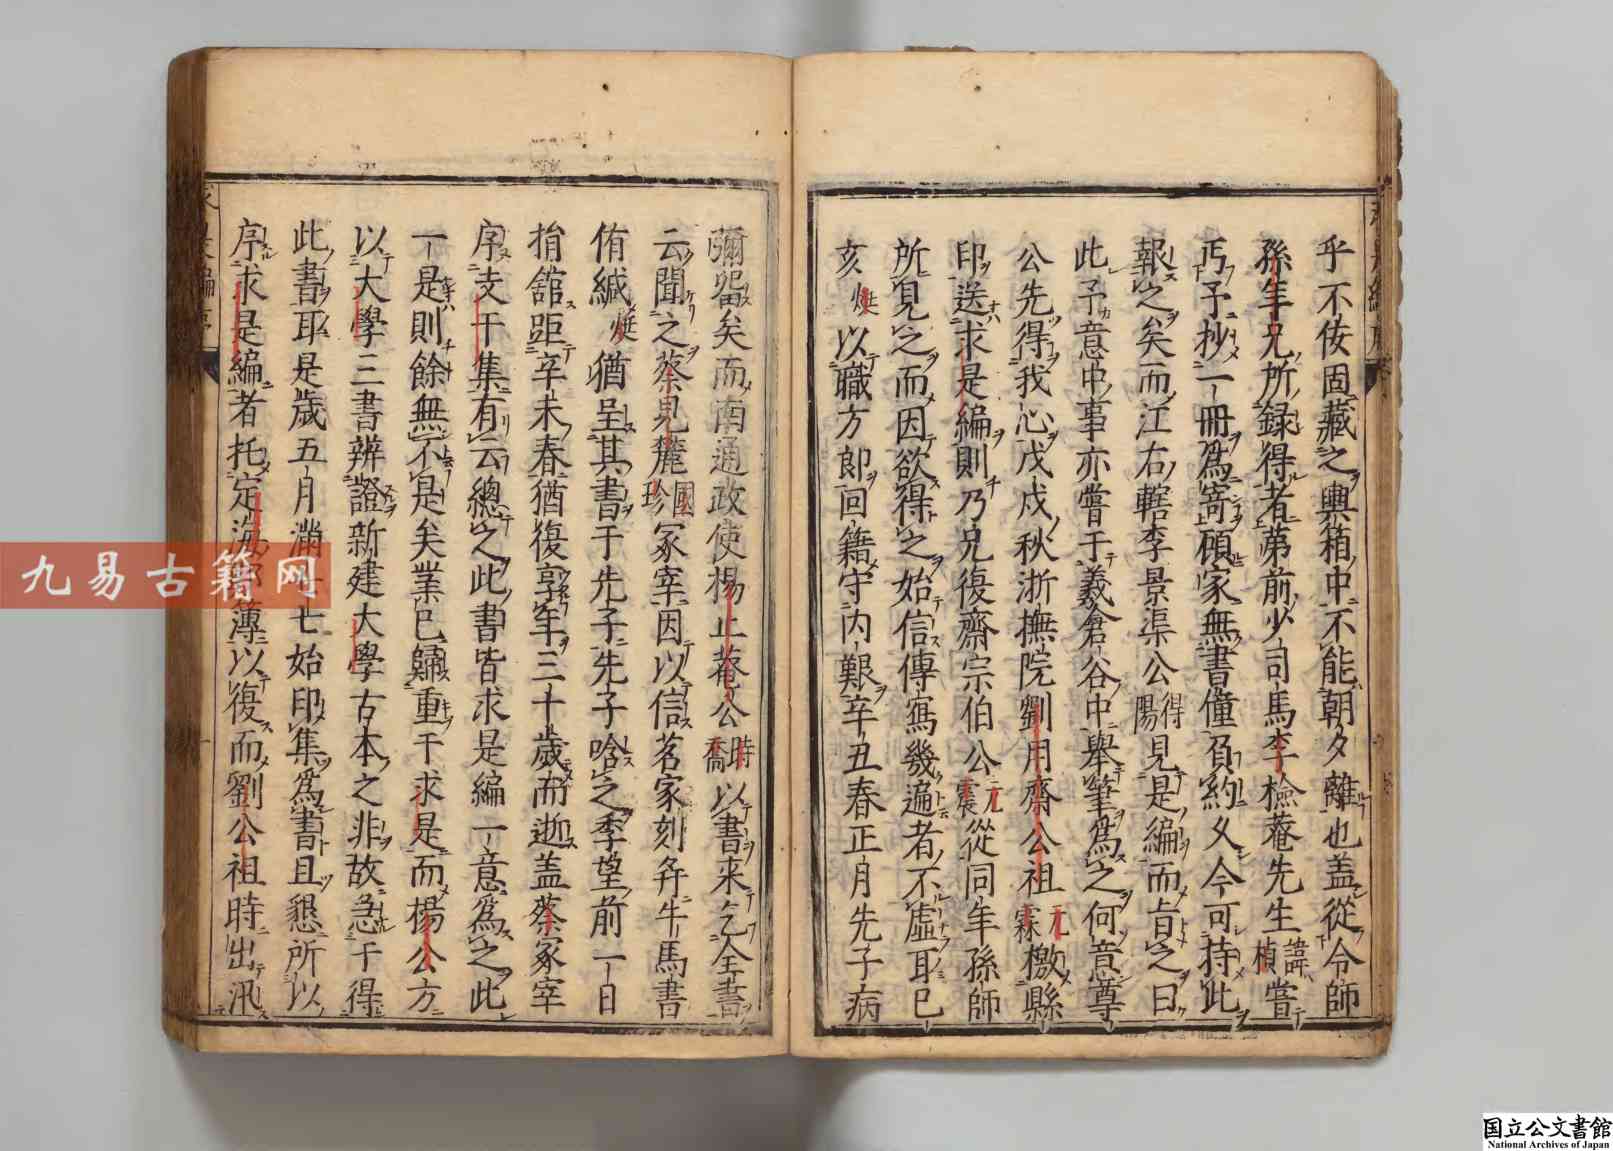 乎不佞固藏之輿箱中不能朝夕離也盖從令師
孫年兄所録得者苐前少司馬李檢菴先生諱楨嘗
丐予抄一冊爲寄頋家無書僮負約久今可持此
報之矣而江右轄李景渠公得陽見是編而旨之曰
此予意中事亦嘗于羲倉谷中舉筆爲之何意尊
公先得我心戊戍秋浙撫院劉用齋公祖元霖檄縣
印送求是編則乃兄復齋宗伯公元震從同年孫師
所見之而因欲得之始信傳寫幾遍者不虛耳已
亥烶以職方郎回籍守内艱辛丑春正月先子病
彌留矣而南通政使楊止菴公時喬以書來乞全書
云聞之蔡見麓國珍冢宰因以信茗家刻弁牛馬書
侑緘烶猶呈其書于先子先子啥之季望前一日
捐舘距辛未春猶復享年三十歲而逝盖蔡冢宰
序支干集有云總之此書皆求是編一意爲之此
一是則餘無不是矣業已歸重于求是而楊公方
以大學三書辨證新建大學古本之非故急于得
此書耳是歲五月滿七七始印集爲書且懇所以
序求是編者托定海薄以復而劉公祖時出汛
九易古籍网
国立公文書館
National Archives of Japan